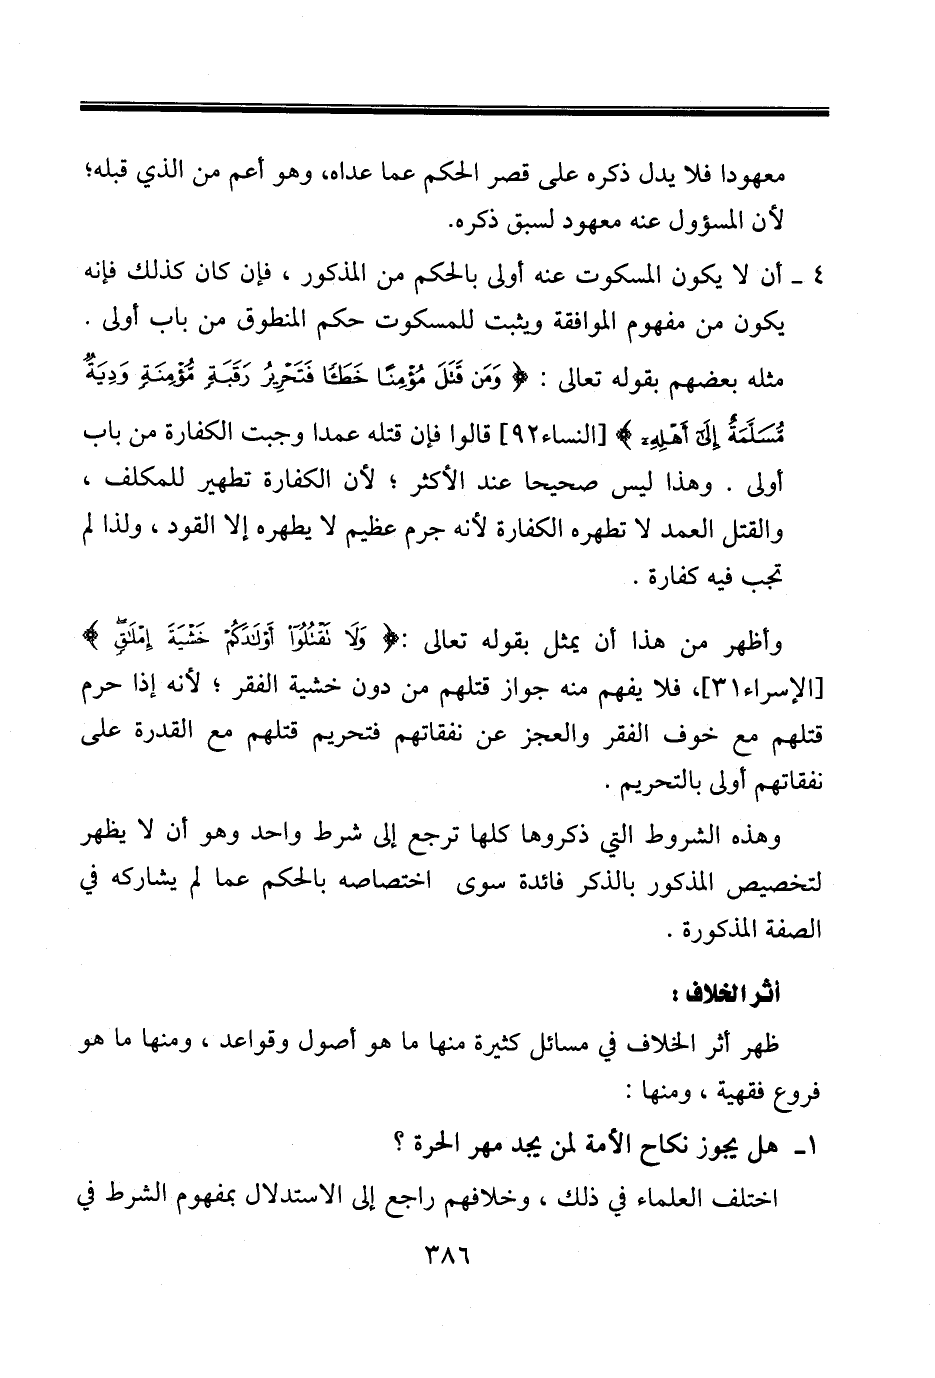 معهودا فلا يدل ذكره على قصر الحكم عما عداه، وهو أعم من الذي قبله؛
لأن المسؤول عنه معهود لسبق ذكره.
٤ ـ أن لا يكون المسكوت عنه أولى بالحكم من المذكور ، فإن كان كذلك فإنه
يكون من مفهوم الموافقة ويثبت للمسكوت حكم المنطوق من باب أولى .
مثله بعضهم بقوله تعالى : ﴿ وَمَن قَتَلَ مُؤْمِنًا خَطَـًٔا فَتَحْرِيرُ رَقَبَةٍ مُّؤْمِنَةٍ وَدِيَةٌ
مُّسَلَّمَةٌ إِلَىٰٓ أَهْلِهِۦ ﴾ [النساء٩٢] قالوا فإن قتله عمدا وجبت الكفارة من باب
أولى . وهذا ليس صحيحا عند الأكثر ؛ لأن الكفارة تطهير للمكلف ،
والقتل العمد لا تطهره الكفارة لأنه جرم عظيم لا يطهره إلا القود ، ولذا لم
تجب فيه كفارة .
وأظهر من هذا أن يمثل بقوله تعالى :﴿ وَلَا تَقْتُلُوٓا۟ أَوْلَـٰدَكُمْ خَشْيَةَ إِمْلَـٰقٍۖ ﴾
[الإسراء٣١]، فلا يفهم منه جواز قتلهم من دون خشية الفقر ؛ لأنه إذا حرم
قتلهم مع خوف الفقر والعجز عن نفقاتهم فتحريم قتلهم مع القدرة على
نفقاتهم أولى بالتحريم .
وهذه الشروط التي ذكروها كلها ترجع إلى شرط واحد وهو أن لا يظهر
لتخصيص المذكور بالذكر فائدة سوى اختصاصه بالحكم عما لم يشاركه في
الصفة المذكورة .
أثر الخلاف :
ظهر أثر الخلاف في مسائل كثيرة منها ما هو أصول وقواعد ، ومنها ما هو
فروع فقهية ، ومنها :
١ـ هل يجوز نكاح الأمة لمن يجد مهر الحرة ؟
اختلف العلماء في ذلك ، وخلافهم راجع إلى الاستدلال بمفهوم الشرط في
٣٨٦